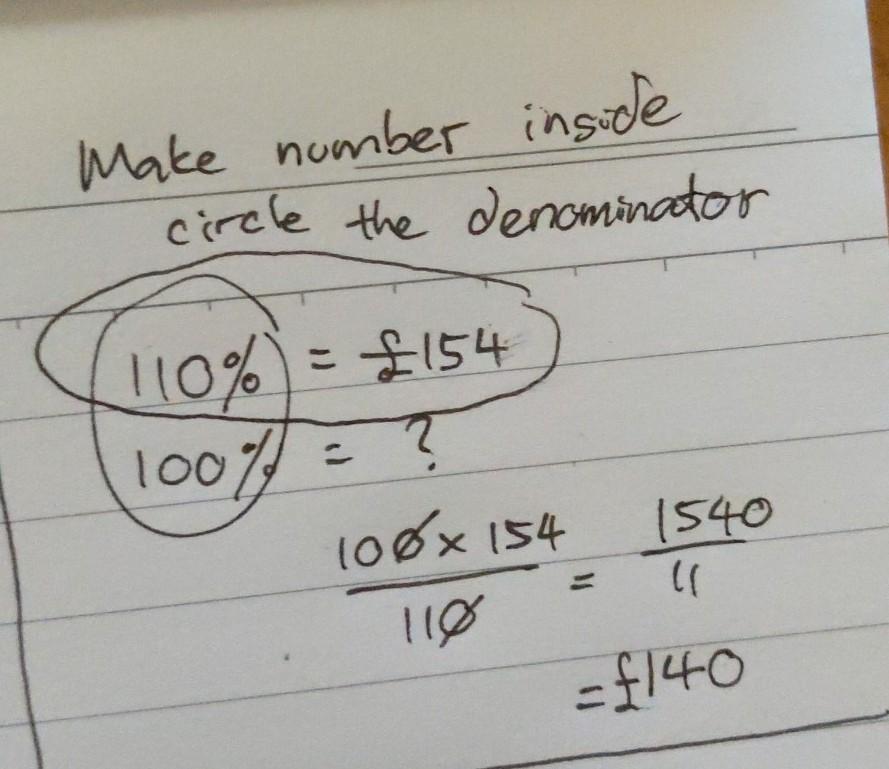 Make number inside
circle the denominator
110% = £154
100% = ?
100 x 154 / 110 = 1540 / 11
= £140